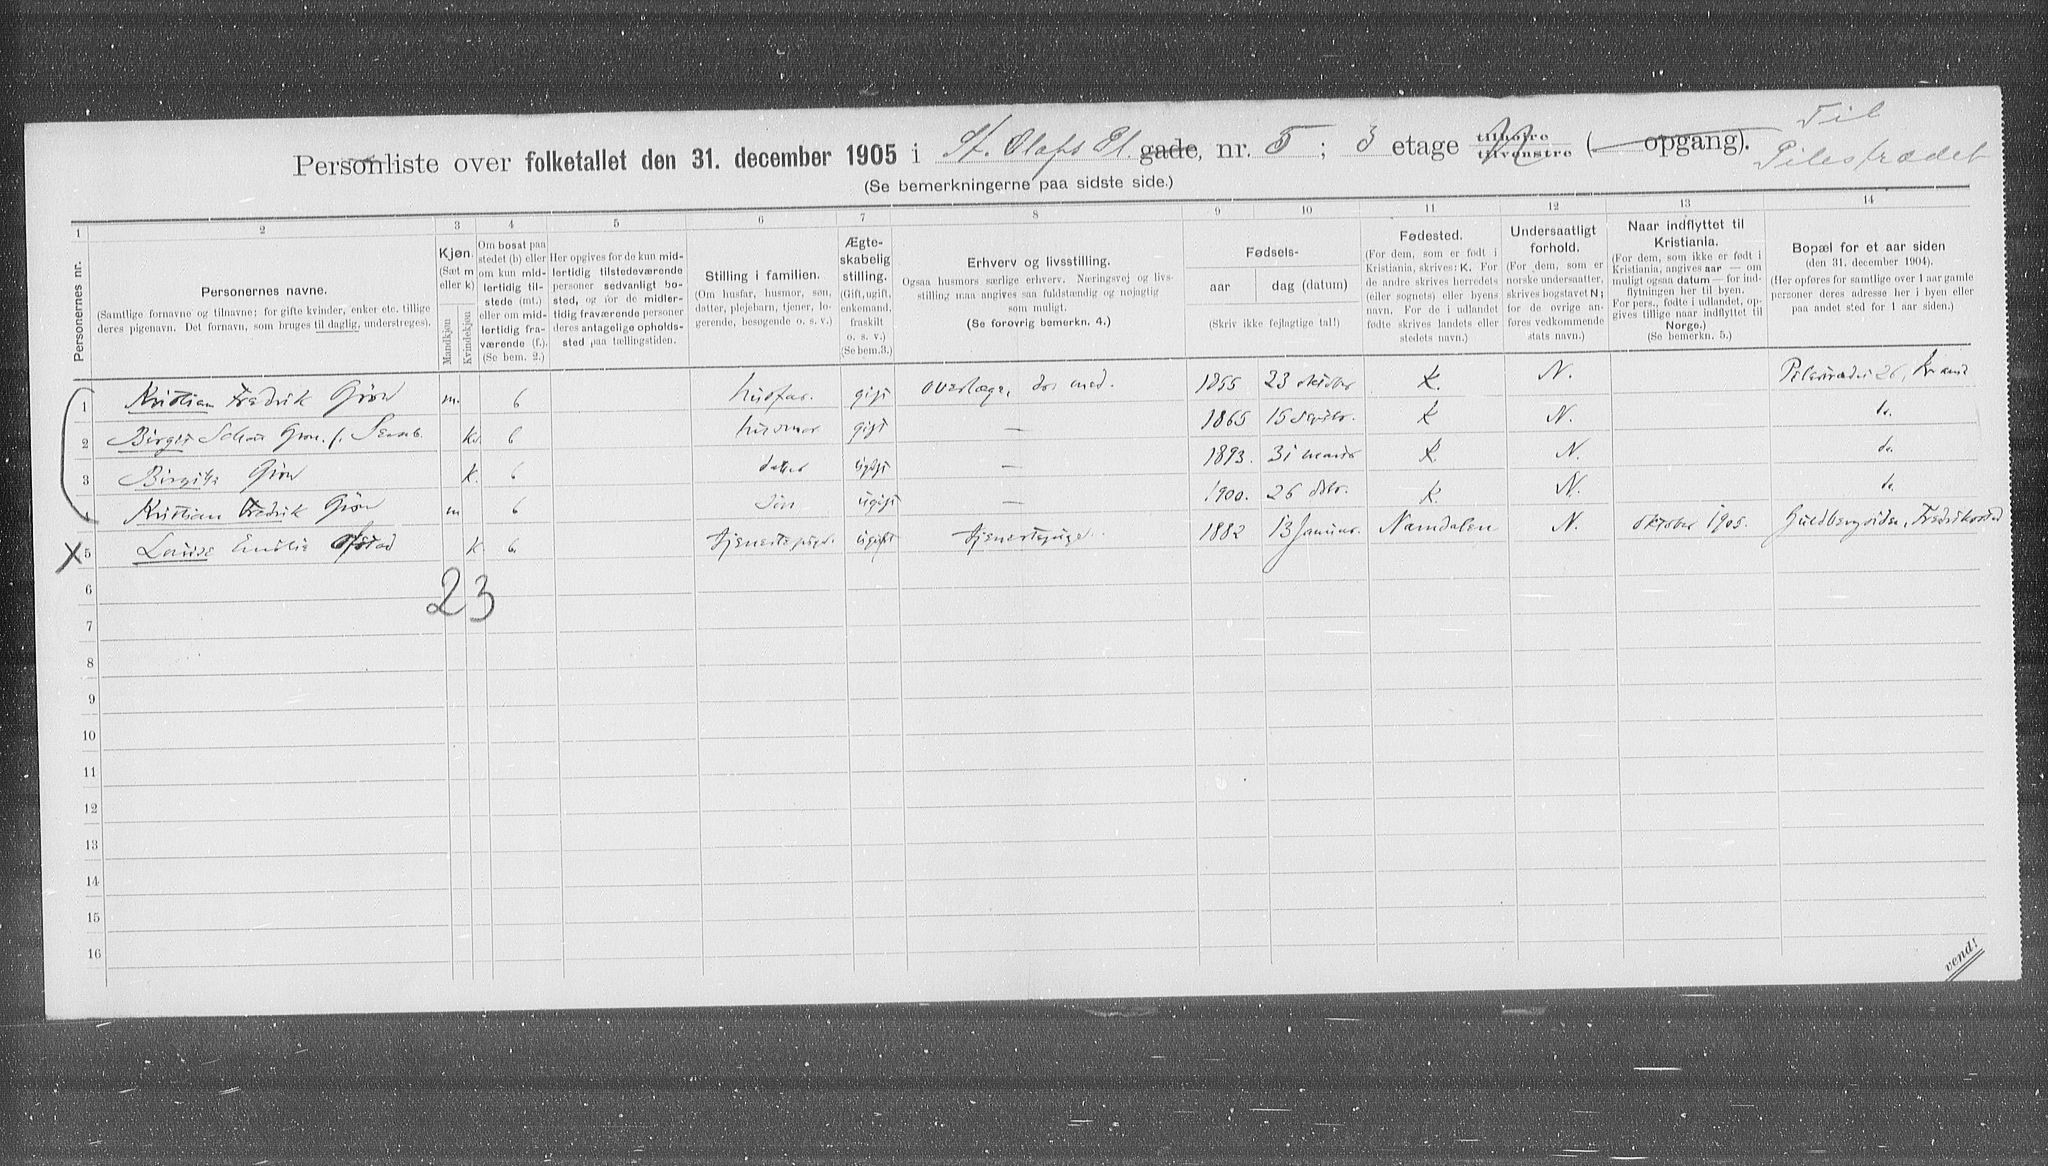 Til
Pilestrædet
Personliste over folketallet den 31. december 1905 i St. Olafs Pl. gade, nr. 5 ; 3 etage tilhøire tilvenstre (— opgang).
(Se bemerkningerne paa sidste side.)
1 2 3 4 5 6 7 8 9 10 11 12 13 14
Personernes nr.
Personernes navne.
(Samtlige fornavne og tilnavne; for gifte kvinder, enker etc. tillige
deres pigenavn. Det fornavn, som bruges til daglig, understreges).
Kjøn.
(Sæt m
eller k)
Mandkjøn
Kvindekjøn
Om bosat paa
stedet (b) eller
om kun mid-
lertidig til-
stede (mt.)
eller om mid-
lertidig fra-
værende (f.).
(Se bem. 2.)
Her opgives for de kun mid-
lertidig tilstedeværende
personer sedvanligt bo-
sted, og for de midler-
tidig fraværende personer
deres antagelige opholds-
sted paa tællingstiden.
Stilling i familien.
(Om husfar, husmor, søn,
datter, plejebarn, tjener, lo-
gerende, besøgende o. s. v.)
Ægte-
skabelig
stilling.
(Gift, ugift,
enkemand,
fraskilt
o. s. v.)
(Se bem.3.)
Erhverv og livsstilling.
Ogsaa husmors særlige erhverv. Næringsvej og livs-
stilling maa angives saa fuldstændig og nøjagtig
som muligt.
(Se forøvrig bemerkn. 4.)
Fødsels-
aar
dag (datum)
(Skriv ikke fejlagtige tal!)
Fødested.
(For dem, som er født i
Kristiania, skrives: K. For
de andre skrives herredets
(eller sognets) eller byens
navn. For de i udlandet
fødte skrives landets eller
stedets navn.)
Undersaatligt
forhold.
(For dem, som er
norske undersaatter,
skrives bogstavet N;
for de øvrige an-
føres vedkommende
stats navn.)
Naar indflyttet til
Kristiania.
(For dem, som ikke er født i
Kristiania, angives aar — om
muligt ogsaa datum — for ind-
flytningen her til byen.
For pers., fødte i udlandet, op-
gives tillige naar indflyttet til
Norge.)
(Se bemerkn. 5.)
Bopæl for et aar siden
(den 31. december 1904).
(Her opføres for samtlige over 1 aar gamle
personer deres adresse her i byen eller
paa andet sted for 1 aar siden.)
1 Kristian Fredrik Grøn m. b husfar. gift overlæge, dr. med. 1855 23 oktober K. N. Pilestrædet 26,
2 Birgit Grøn f. k. b husmor gift — 1865 15 Septbr. K N. do.
3 Birgitte Grøn k. b datter ugift — 1893. 31 marts K. N. do.
4 Kristian Fredrik Grøn m b søn ugift — 1900. 26 K N. do.
X 5 Louise Emilie Ofstad k. b. tjenestepige. ugift tjenestepige. 1882 13 Januar. Namdalen N. oktober 1905. Fredrikstad
23
6
7
8
9
10
11
12
13
14
15
16
vend!